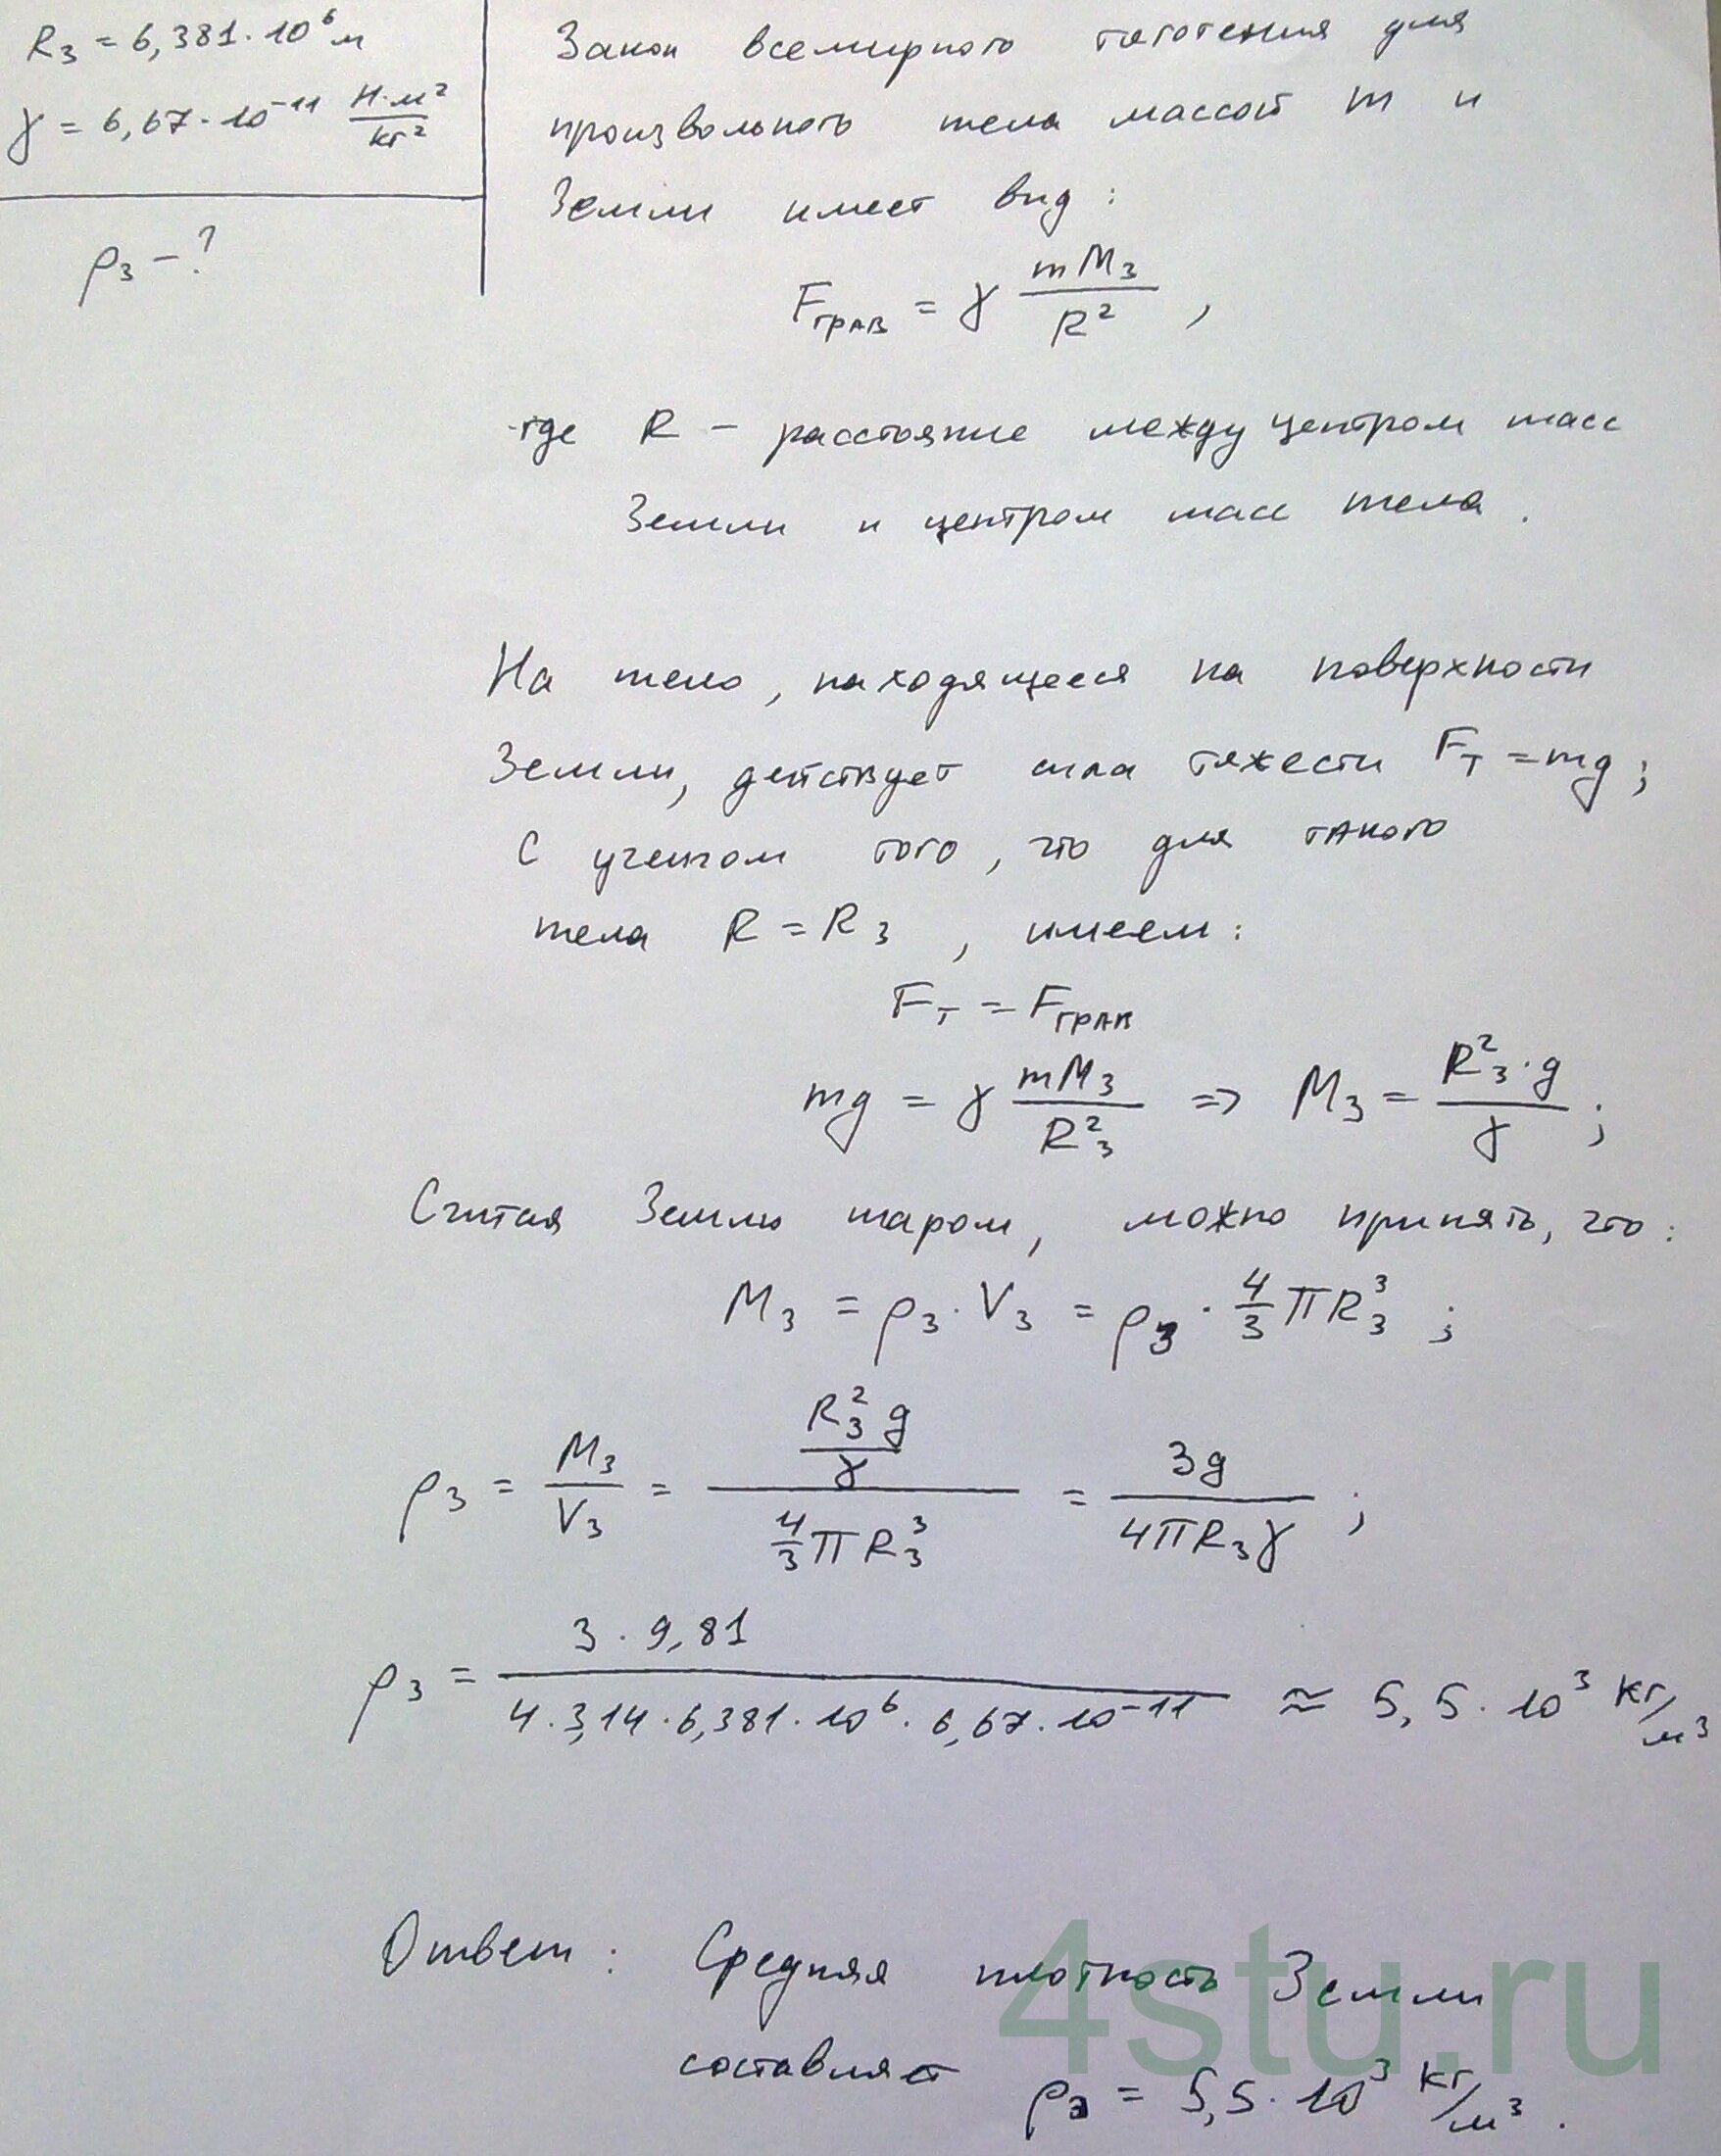 R₃ = 6,381·10⁶ м
γ = 6,67·10⁻¹¹ Н·м²/кг²
ρ₃ – ?
Закон всемирного тяготения для
произвольного тела массой m и
Земли имеет вид:
F_грав = γ mM₃/R² ,
где R – расстояние между центром масс
Земли и центром масс тела.
На тело, находящееся на поверхности
Земли, действует сила тяжести F_т = mg;
С учетом того, что для такого
тела R = R₃, имеем:
F_т = F_грав
mg = γ mM₃/R₃² => M₃ = R₃²·g/γ ;
Считая Землю шаром, можно принять, что:
M₃ = ρ₃·V₃ = ρ₃ · 4/3 πR₃³ ;
ρ₃ = M₃/V₃ = (R₃²g/γ)/(4/3 πR₃³) = 3g/(4πR₃γ) ;
ρ₃ = 3·9,81/(4·3,14·6,381·10⁶·6,67·10⁻¹¹) ≈ 5,5·10³ кг/м³
Ответ: Средняя плотность Земли
составляет ρ₃ = 5,5·10³ кг/м³.
4stu.ru